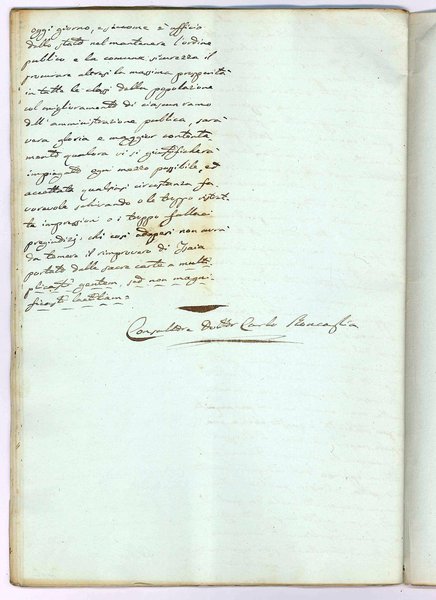 oggi giorno, e siccome è officio
dello stato nel mantenere l'ordine
pubblico e la comune sicurezza il
procurare altresì la massima prosperità
in tutte le classi della popolazione
col miglioramento di ciascun ramo
dell'amministrazione pubblica, sarà
vera gloria e maggior contenta
mento qualora vi si
impiegando ogni mezzo possibile, ed
accettate qualsiasi circostanza fa-
vorevole schivando o le troppo
te impressioni o i troppo fallaci
pregiudizj: chi così adoperi non avrà
da temere il rimprovero di Isaia
portato dalle sacre carte a multi
plicasti gentem, sed non magni
ficasti laetitiam =
Consultore Dottr Carlo Roncaglia